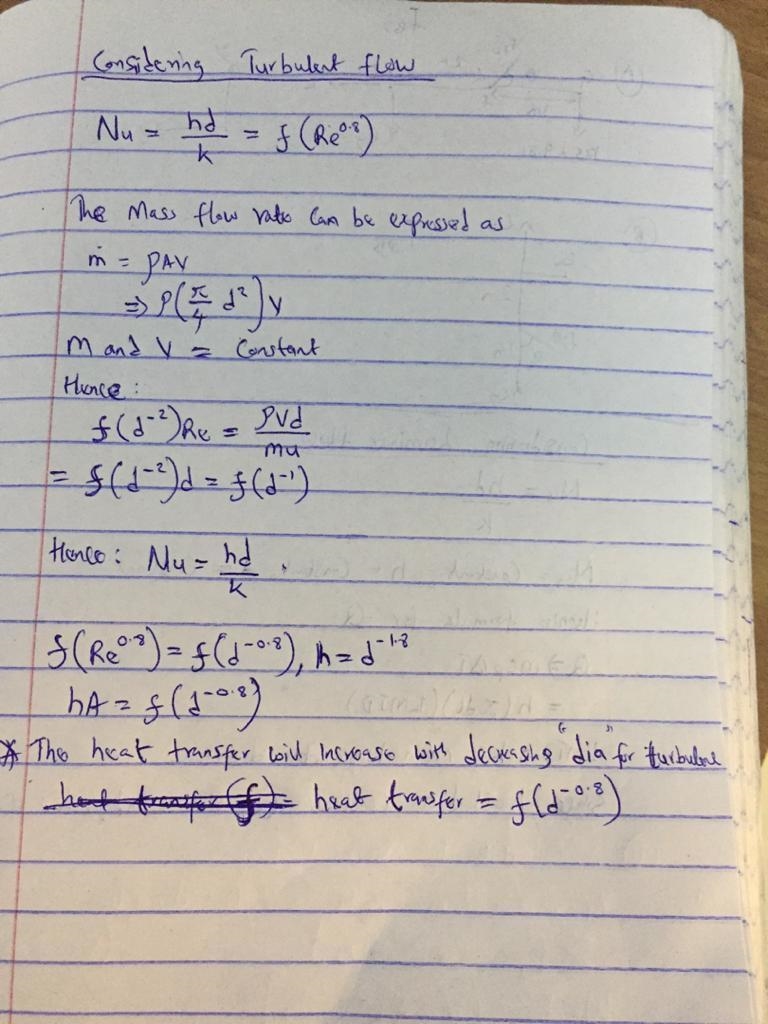 Considering Turbulent flow
Nu = hd/k = f(Re^0.8)
The Mass flow rate Can be expressed as
ṁ = ρAV
⇒ ρ(π/4 d²)V
m and V = Constant
Hence:
f(d⁻²)Re = ρVd/mu
= f(d⁻²)d = f(d⁻¹)
Hence: Nu = hd/k .
f(Re^0.8) = f(d^-0.8), h = d^-1.8
hA = f(d^-0.8)
* The heat transfer will Increase with decreasing "dia" for turbulent
heat transfer (f) = heat transfer = f(d^-0.8)